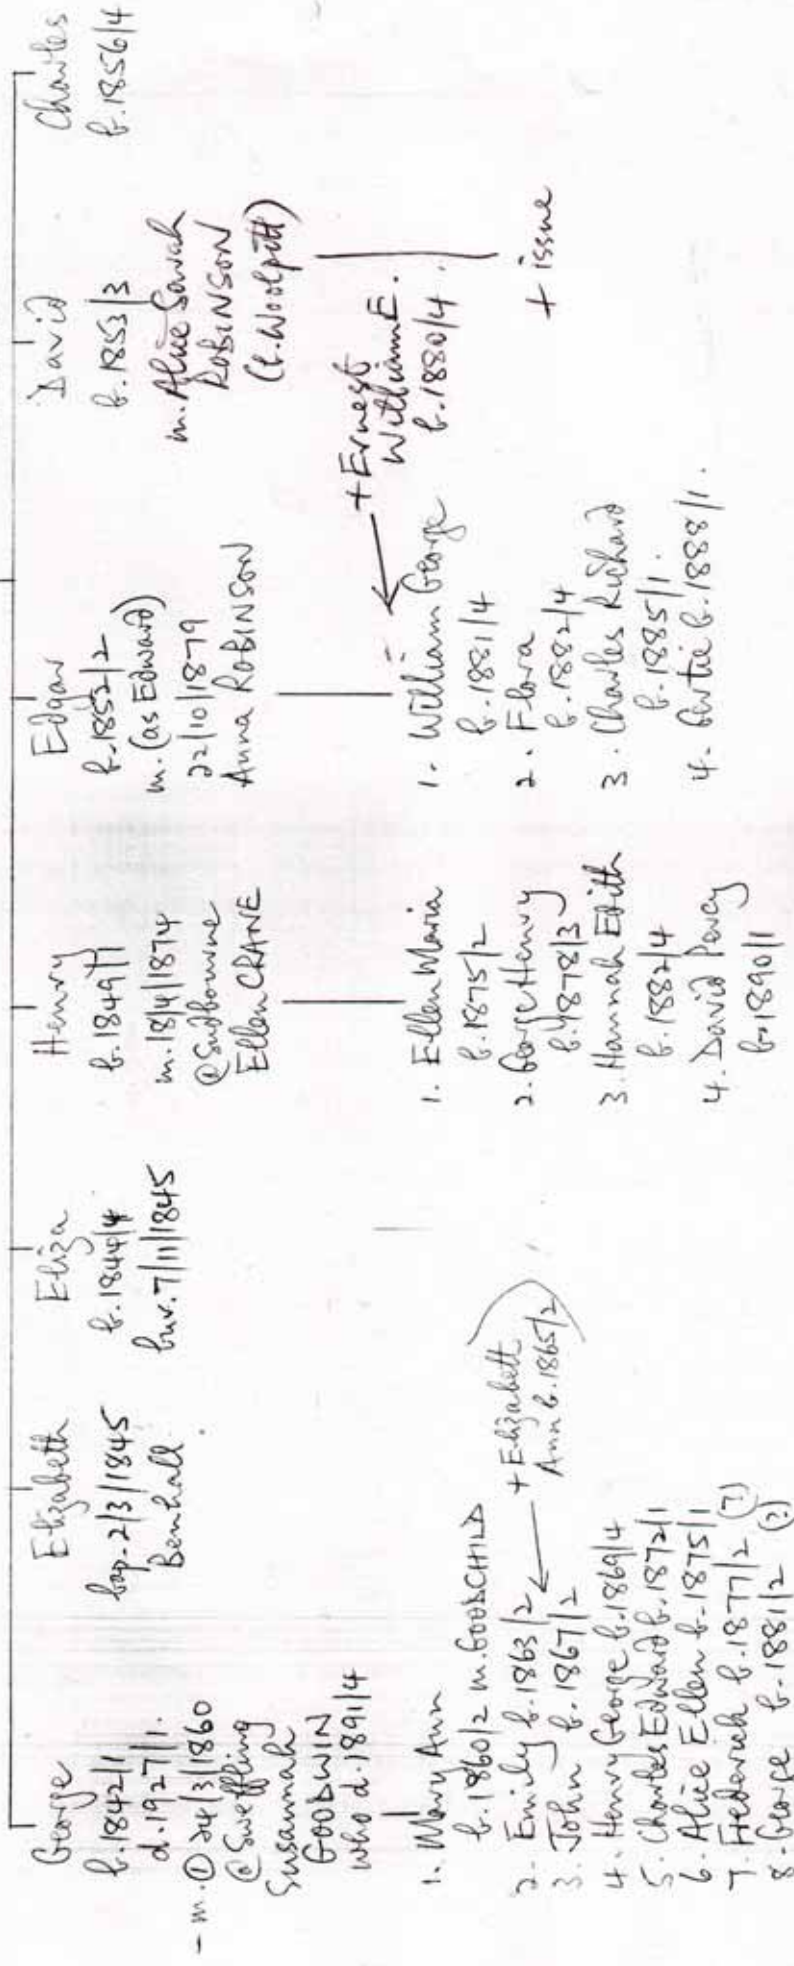 George
b.1842/1
d.1927/1.
- m.① 24/3/1860
@ Sweffling
Susannah
GOODWIN
who d.1891/4
1. Mary Ann
b.1860/2 m.GOODCHILD
2. Emily b.1863/2
+ Elizabeth
Ann b.1865/2
3. John b.1867/2
4. Henry George b.1869/4
5. Charles Edward b.1872/1
6. Alice Ellen b.1875/1
7. Frederick b.1877/2 (?)
8. George b.1881/2 (?)
Elizabeth
bap. 2/3/1845
Benhall.
Eliza
b.1844/4
bur. 7/11/1845
Henry
b.1849/1
m.18/4/1874
@ Sudbourne
Ellen CRANE
1. Ellen Maria
b.1875/2
2. George Henry
b.1878/3
3. Hannah Edith
b.1882/4
4. David Percy
b.1890/1
Edgar
b.1852/2
m. (as Edward)
22/10/1879
Anna ROBINSON
+ Ernest
William E.
b.1880/4.
1. William George
b.1881/4
2. Flora
b.1882/4
3. Charles Richard
b.1885/1.
4. Bertie b.1888/1.
David
b.1853/3
m. Alice Sarah
ROBINSON
(b. Woolpitt)
+ issue
Charles
b.1856/4